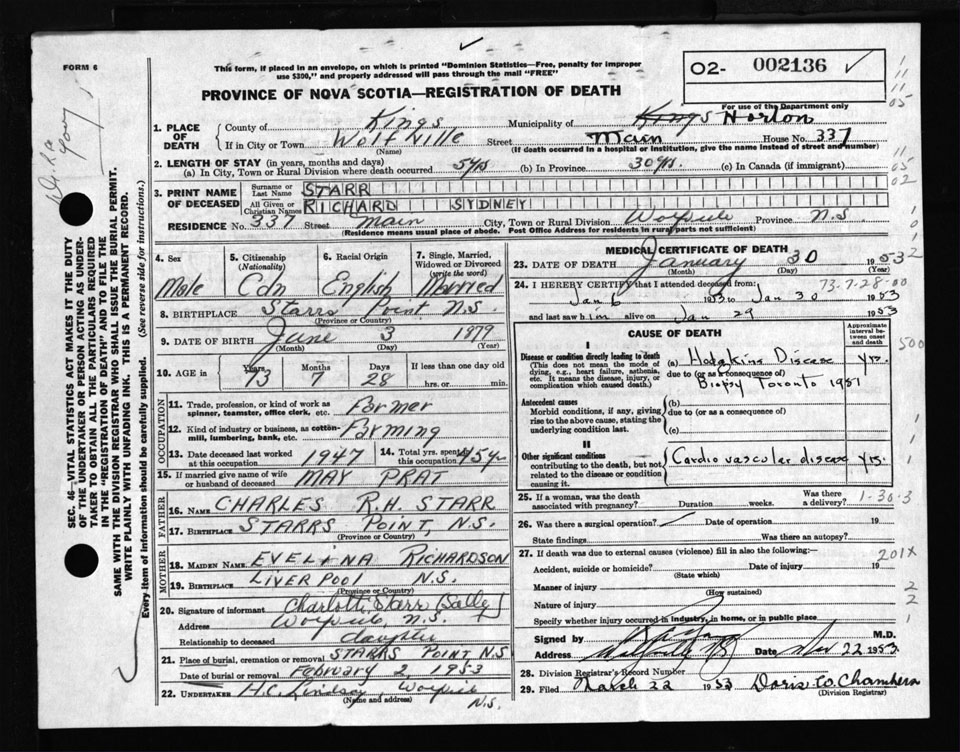 FORM 6
This form, if placed in an envelope, on which is printed "Dominion Statistics—Free, penalty for improper
use $300," and properly addressed will pass through the mail "FREE"
O2- 002136 ✓
PROVINCE OF NOVA SCOTIA—REGISTRATION OF DEATH
For use of the Department only
1. PLACE OF DEATH
County of Kings Municipality of Kings Horton
If in City or Town Wolfville Street Main House No. 337
(Name) (If death occurred in a hospital or institution, give the name instead of street and number)
2. LENGTH OF STAY (in years, months and days)
(a) In City, Town or Rural Division where death occurred 5 yrs (b) In Province 30 yrs. (c) In Canada (if immigrant)
3. PRINT NAME OF DECEASED
Surname or Last Name STARR
All Given or Christian Names RICHARD SYDNEY
RESIDENCE No. 337 Street Main City, Town or Rural Division Wolfville Province N.S.
(Residence means usual place of abode. Post Office Address for residents in rural parts not sufficient)
4. Sex Male
5. Citizenship (Nationality) Cdn
6. Racial Origin English
7. Single, Married, Widowed or Divorced (write the word) Married
8. BIRTHPLACE Starrs Point N.S.
(Province or Country)
9. DATE OF BIRTH June 3 1879
(Month) (Day) (Year)
10. AGE in Years 73 Months 7 Days 28 If less than one day old
hrs. or min.
OCCUPATION
11. Trade, profession, or kind of work as
spinner, teamster, office clerk, etc. Farmer
12. Kind of industry or business, as cotton-
mill, lumbering, bank, etc. Farming
13. Date deceased last worked at this occupation 1947
14. Total yrs. spent at this occupation 45 yrs
15. If married give name of wife or husband of deceased MAY PRAT
FATHER
16. NAME CHARLES R.H. STARR
17. BIRTHPLACE STARRS POINT, N.S.
(Province or Country)
MOTHER
18. MAIDEN NAME EVELINA RICHARDSON
19. BIRTHPLACE LIVERPOOL N.S.
(Province or Country)
20. Signature of informant Charlotte Starr (Sally)
Address Wolfville, N.S.
Relationship to deceased daughter
21. Place of burial, cremation or removal STARRS POINT, N.S
Date of burial or removal February 2, 1953
22. UNDERTAKER H.C. Lindsay, Wolfville
(Name and address) N.S.
MEDICAL CERTIFICATE OF DEATH
23. DATE OF DEATH January 30 1953
(Month) (Day) (Year)
24. I HEREBY CERTIFY that I attended deceased from: 73-7-28-00
Jan 6 1953 to Jan 30 1953
and last saw him alive on Jan 29 1953
CAUSE OF DEATH
Approximate interval between onset and death
I
Disease or condition directly leading to death
(This does not mean the mode of
dying, e.g., heart failure, asthenia,
etc. It means the disease, injury, or
complication which caused death.)
(a) Hodgkins Disease yrs.
due to (or as a consequence of)
Biopsy Toronto 1951
Antecedent causes
Morbid conditions, if any, giving
rise to the above cause, stating the
underlying condition last.
(b)
due to (or as a consequence of)
(c)
II
Other significant conditions
contributing to the death, but not
related to the disease or condition
causing it.
Cardio vascular disease yrs.
25. If a woman, was the death associated with pregnancy? Was there a delivery? 1-30-3
26. Was there a surgical operation? Date of operation 19
State findings Was there an autopsy?
27. If death was due to external causes (violence) fill in also the following:— 201X
Accident, suicide or homicide? Date of injury 19
(State which)
Manner of injury
(How sustained)
Nature of injury
Specify whether injury occurred in industry, in home, or in public place
Signed by M.D.
Address Wolfville NS Date 22 1953
28. Division Registrar's Record Number
29. Filed March 22 1953 Doris W. Chambers
(Division Registrar)
SEC. 46—VITAL STATISTICS ACT MAKES IT THE DUTY
OF THE UNDERTAKER OR PERSON ACTING AS UNDER-
TAKER TO OBTAIN ALL THE PARTICULARS REQUIRED
IN THE "REGISTRATION OF DEATH" AND TO FILE THE
SAME WITH THE DIVISION REGISTRAR WHO SHALL ISSUE THE BURIAL PERMIT.
WRITE PLAINLY WITH UNFADING INK. THIS IS A PERMANENT RECORD.
Every item of information should be carefully supplied. (See reverse side for instructions.)